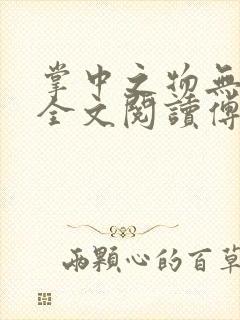 掌中之物無
全文閱讀傅
兩顆心的百草